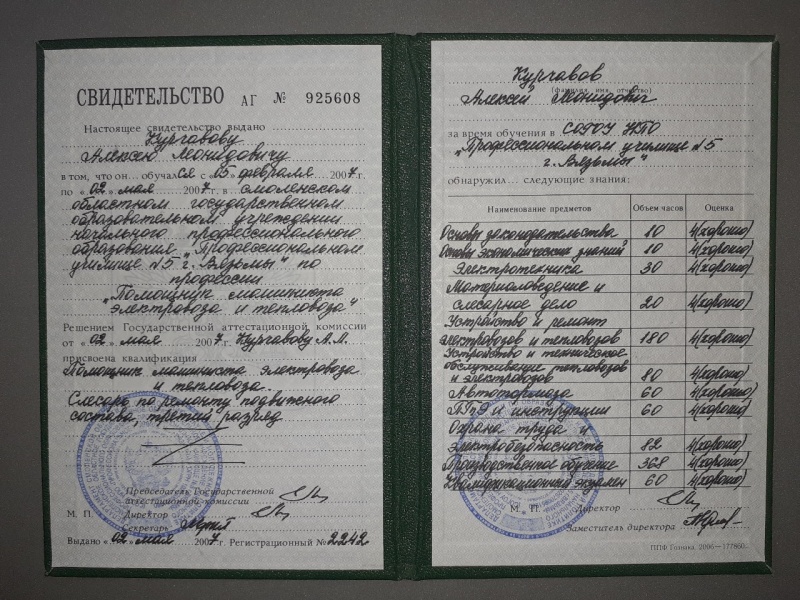 СВИДЕТЕЛЬСТВО АГ № 925608
Настоящее свидетельство выдано
Кургавову
Алексею Леонидовичу
в том, что он... обучался с «05» февраля 2007г.
по «02» мая 2007г. в смоленском
областном государственном
образовательном учреждении
начального профессионального
образования „Профессиональном
училище №5 г. Вязьмы" по
профессии
„Помощник машиниста
электровоза и тепловоза"
Решением Государственной аттестационной комиссии
от «02» мая 2007г. Кургавову А.Л.
присвоена квалификация
Помощник машиниста электровоза
и тепловоза.
Слесарь по ремонту подвижного
состава, третий разряд
Председатель Государственной
аттестационной комиссии
М. П. Директор
Секретарь
Выдано «02» мая 2007г. Регистрационный № 2242
Кургавов
(фамилия, имя, отчество)
Алексей Леонидович
за время обучения в СОГОУ НПО
„Профессиональном училище №5
г. Вязьмы"
обнаружил... следующие знания:
Наименование предметов Объем часов Оценка
Основы законодательства 10 4(хорошо)
Основы экономических знаний 10 4(хорошо)
Электротехника 30 4(хорошо)
Материаловедение и
слесарное дело 20 4(хорошо)
Устройство и ремонт
электровозов и тепловозов 180 4(хорошо)
Устройство и техническое
обслуживание тепловозов
и электровозов 80 4(хорошо)
Автотормоза 60 4(хорошо)
ПТЭ и инструкции 60 4(хорошо)
Охрана труда и
электробезопасность 82 4(хорошо)
Производственное обучение 368 4(хорошо)
Квалификационный экзамен 60 4(хорошо)
М. П. Директор
Заместитель директора
ППФ Гознака. 2006—177860.